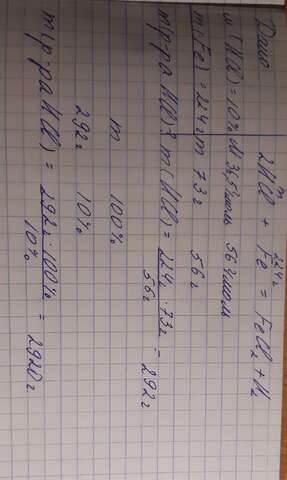 Дано
m 224г
2HCl + Fe = FeCl₂ + H₂
w(HCl) = 10% M 36,5г/моль 56г/моль
m(Fe) = 224г m 73г 56г
m(р-ра HCl)? m(HCl) = 224г · 73г / 56г = 292г
m 100%
292г 10%
m(р-ра HCl) = 292г · 100% / 10% = 2920г.